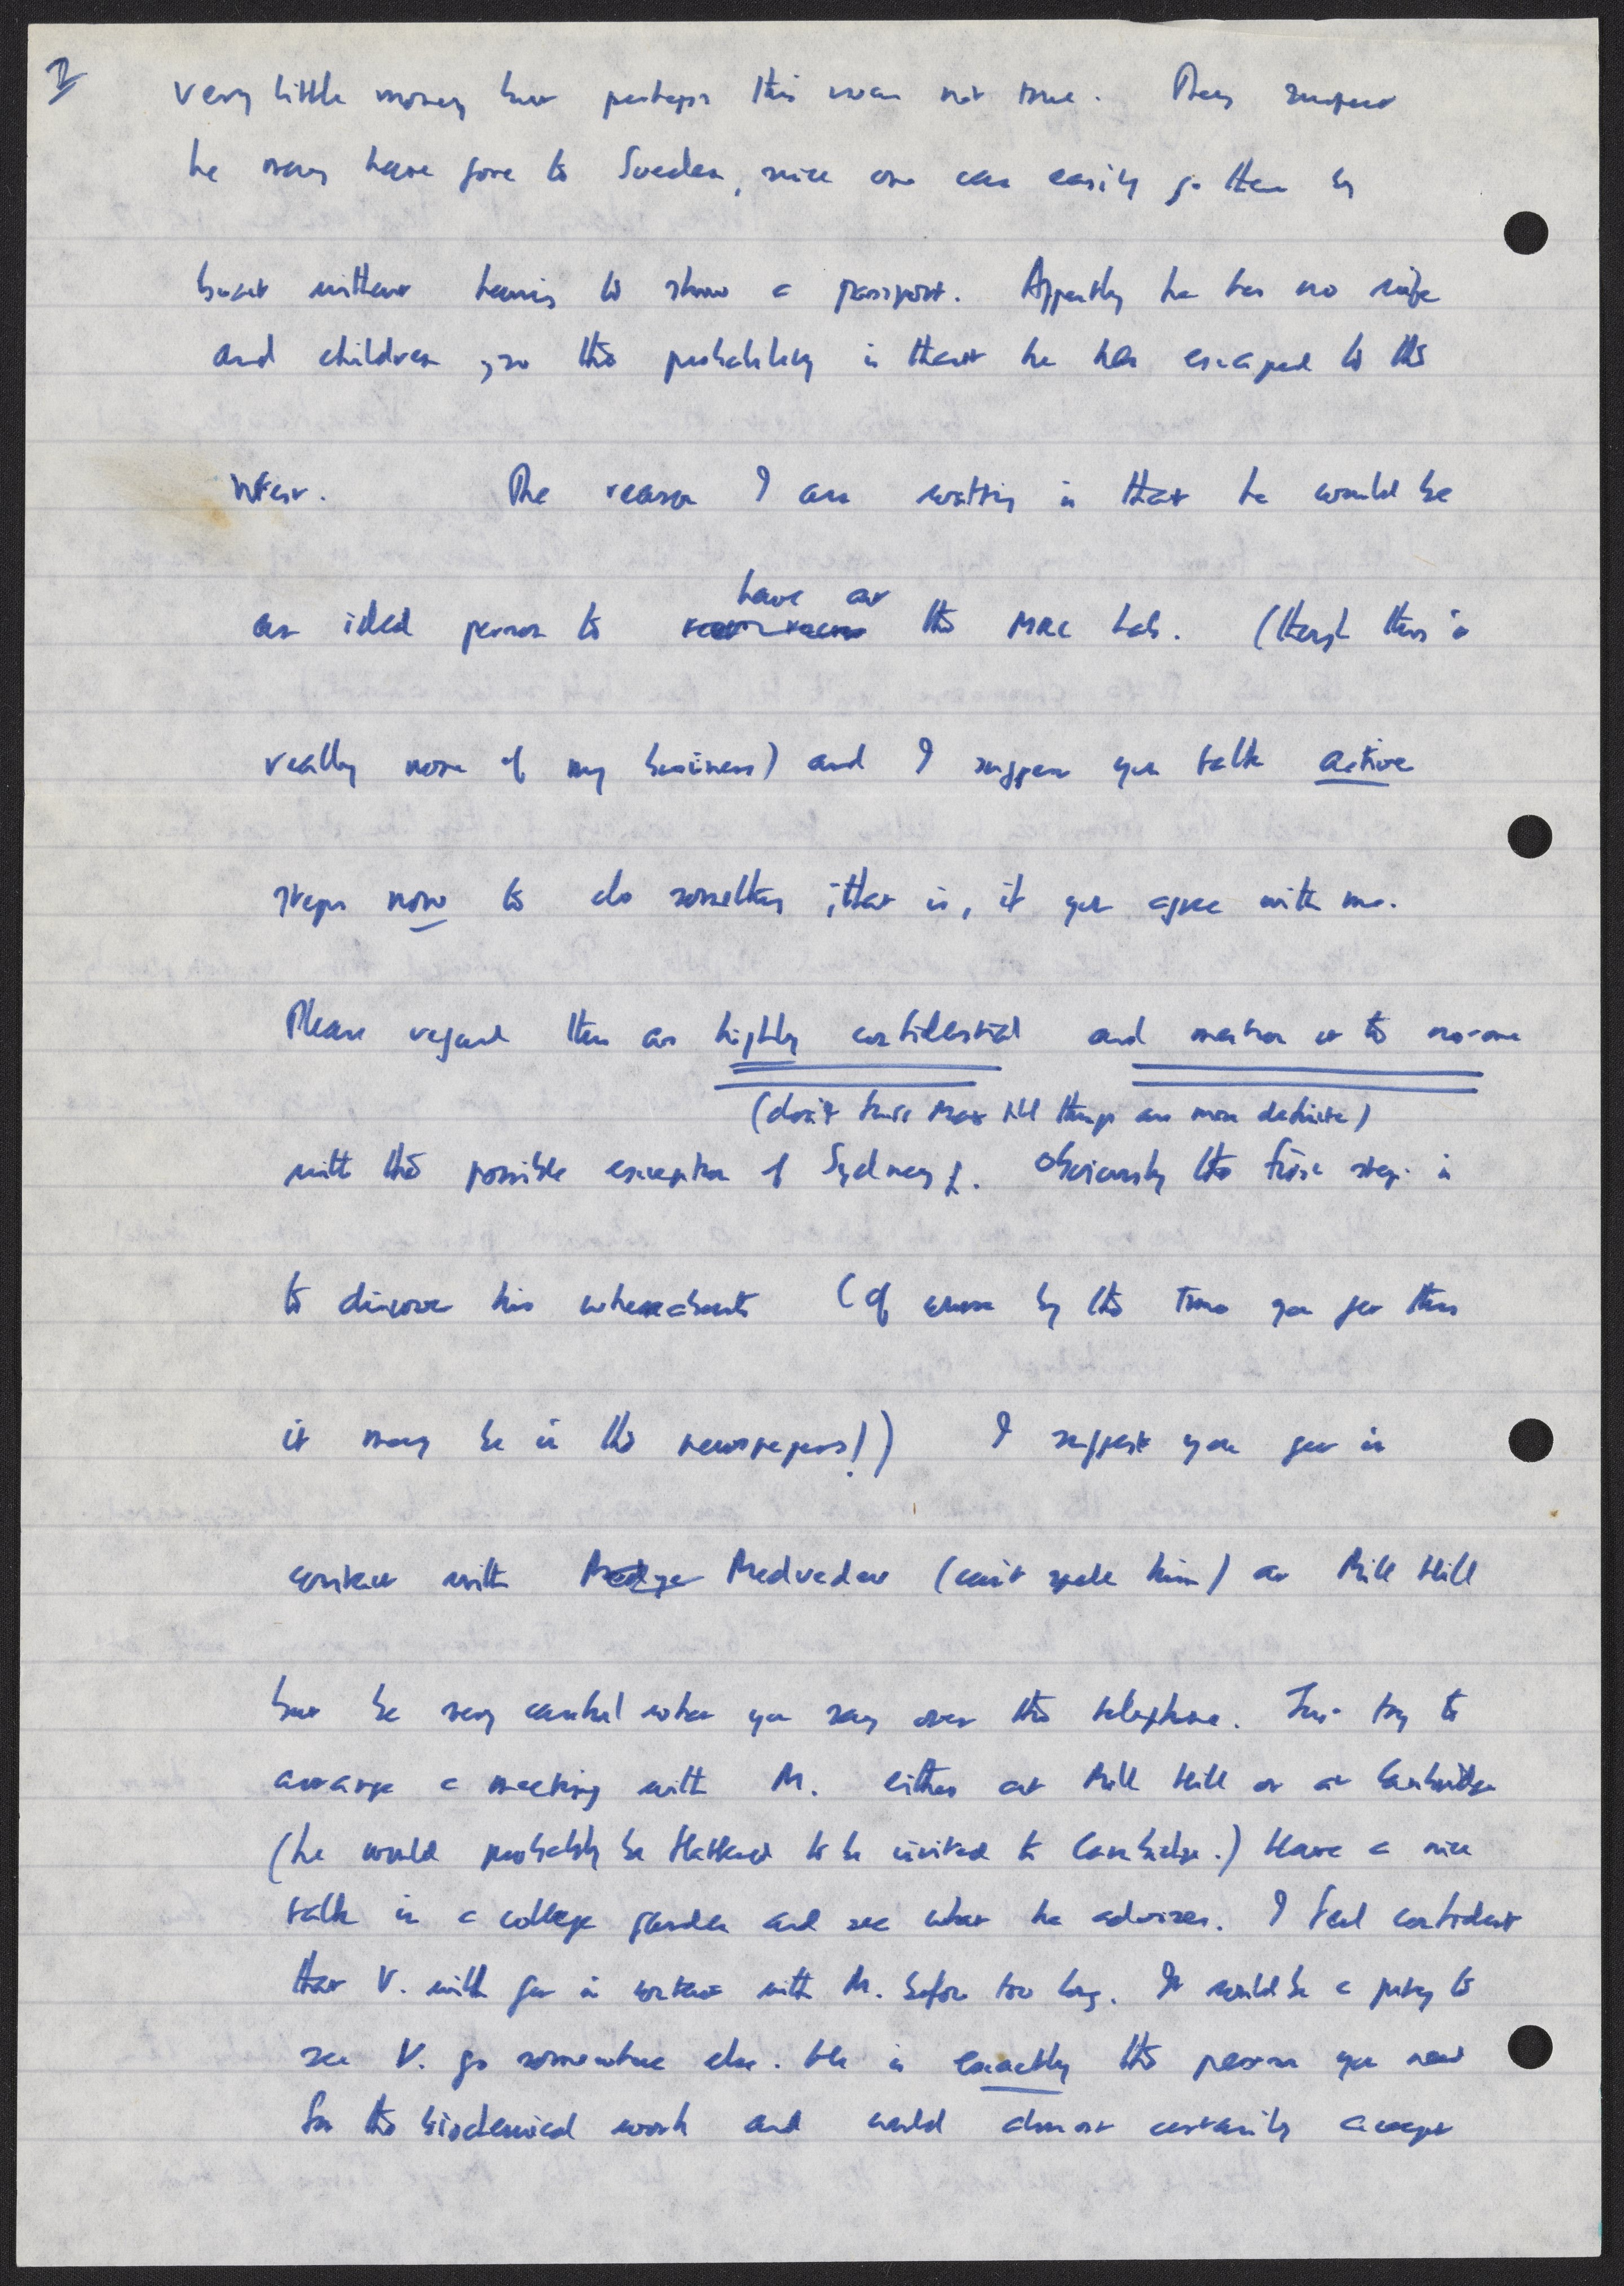 2
very little money but perhaps this was not true. They suspect
he may have gone to Sweden, since one can easily go there by
boat without having to show a passport. Appartly he has no wife
and children, so the probability is that he has escaped to the
West. The reason I am writing is that he would be
have at
an ideal person to the MRC Lab. (though this is
really none of my business) and I suggest you talk active
steps now to do something; that is, if you agree with me.
Please regard this as highly confidential and mention it to no-one
(don't tell Max till things are more definite)
with the possible exception of Sydney. Obviously the first step is
to discover his whereabouts (of course by the time you get this
it may be in the newspapers!) I suggest you get in
contact with Medvedev (can't spell him) at Mill Hill
but be very careful what you say over the telephone. Just try to
arrange a meeting with M. either at Mill Hill or at Cambridge
(he would probably be flattered to be invited to Cambridge.) Have a nice
talk in a college garden and see what he advises. I feel confident
that V. will get in contact with M. before too long. It would be a pity to
see V. go somewhere else. He is exactly the person you need
for the biochemical work and would almost certainly accept